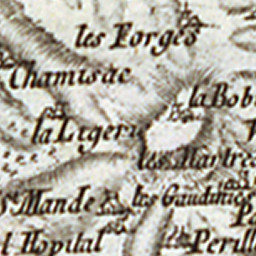 les Forges
Chamisac
la Bob
la Ligerie
les Martre
St Mande
les Gaudinies
l Hopital
Perill